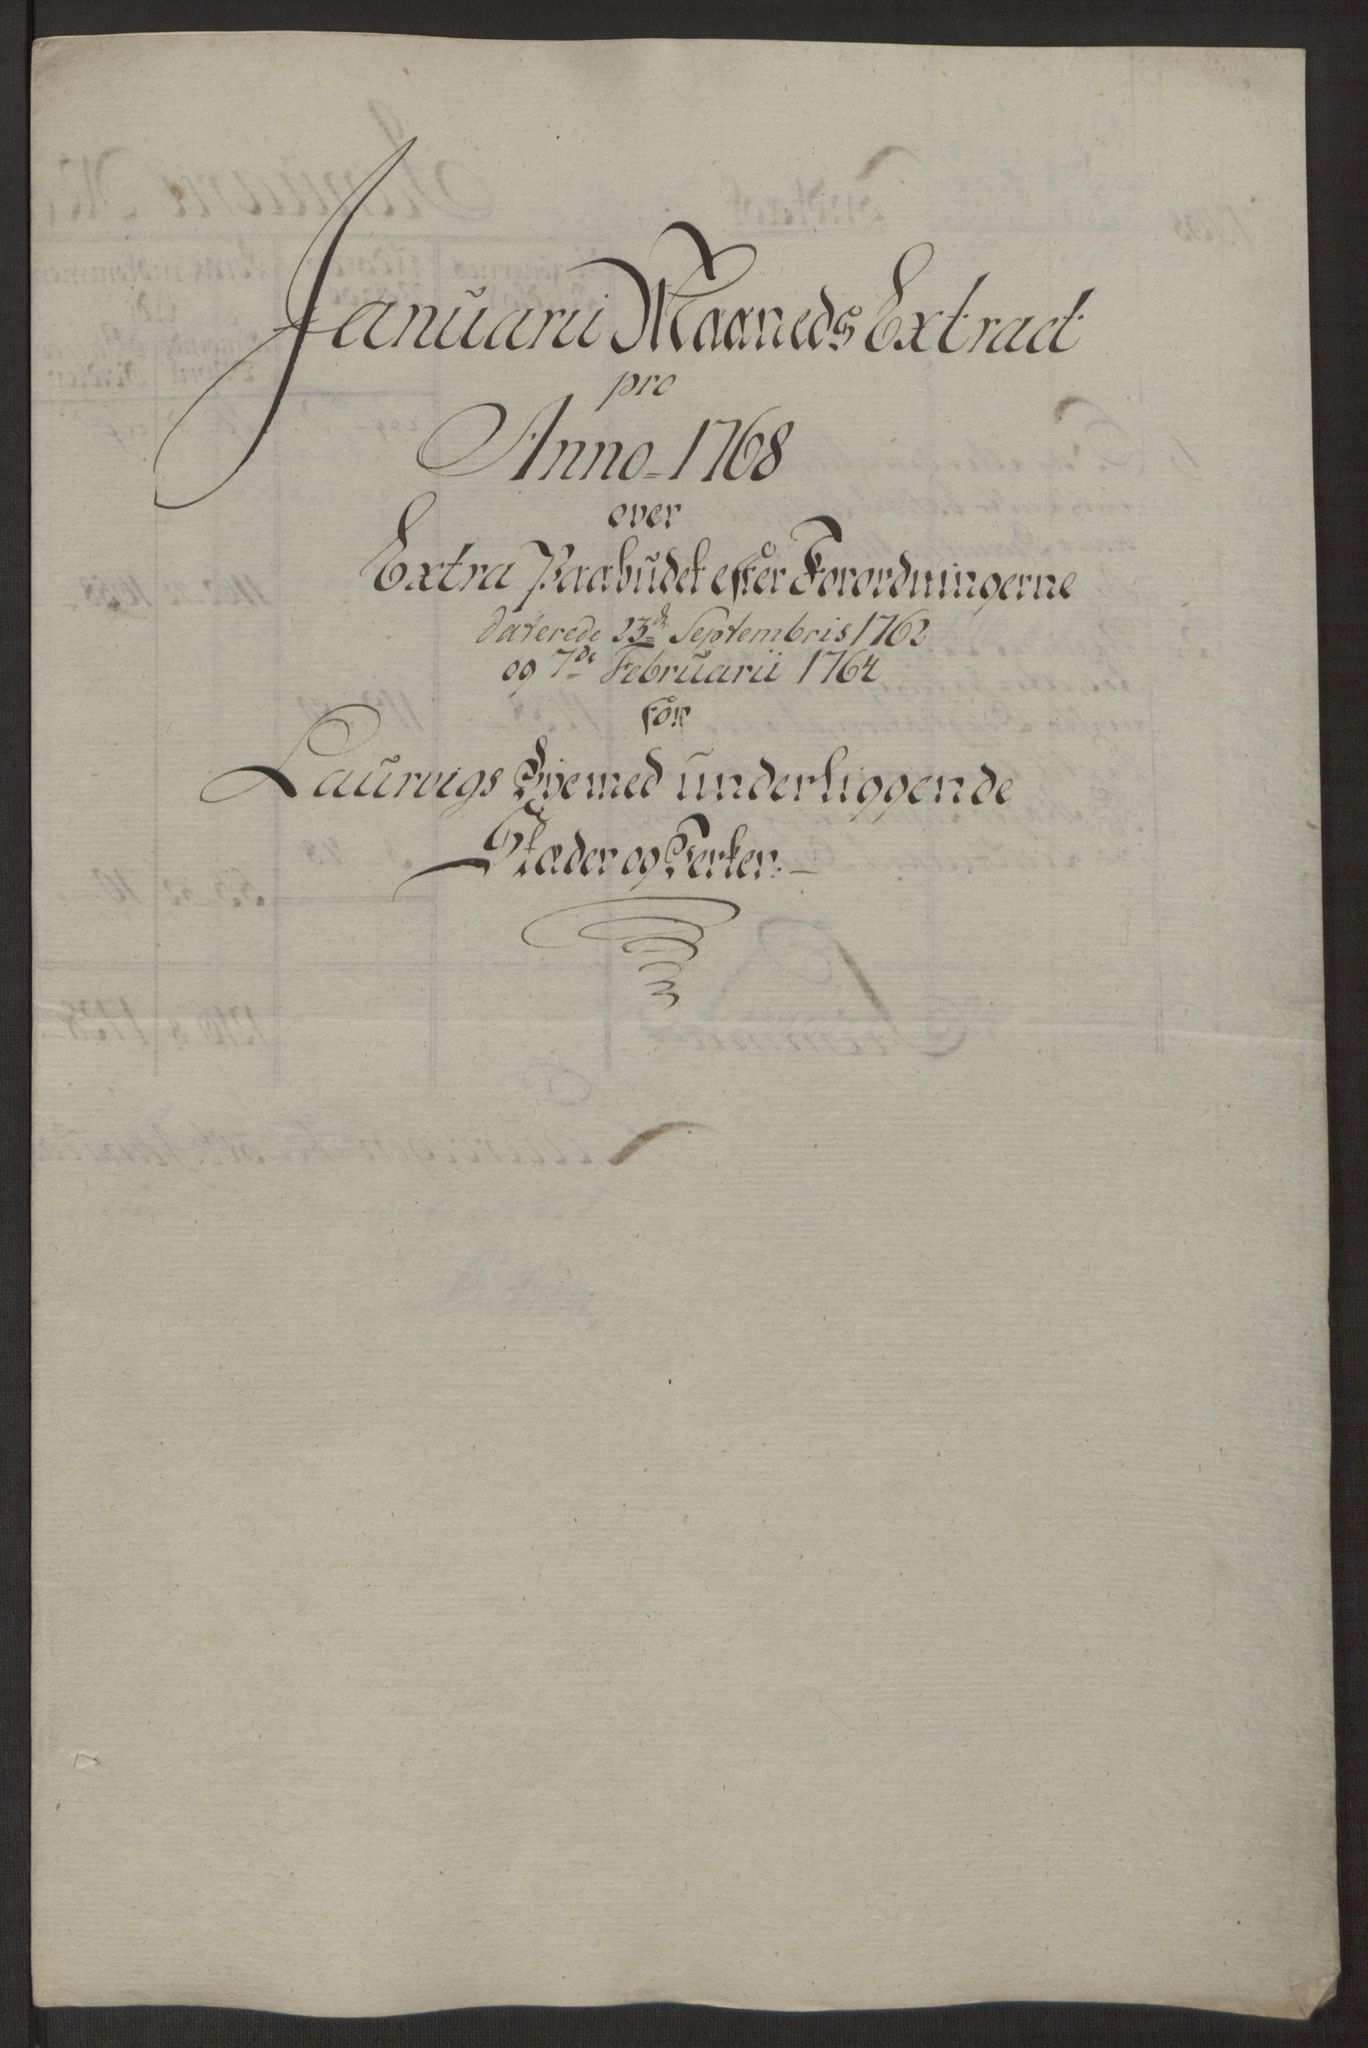 Januarii Maaneds Extract
pro
Anno 1768
over
Extra Paabudet efter Forordningerne
daterede 23de Septembris 1762
og 7de Februarii 1764
for
Laurvigs Bye med underliggende
Stæder og Verker.